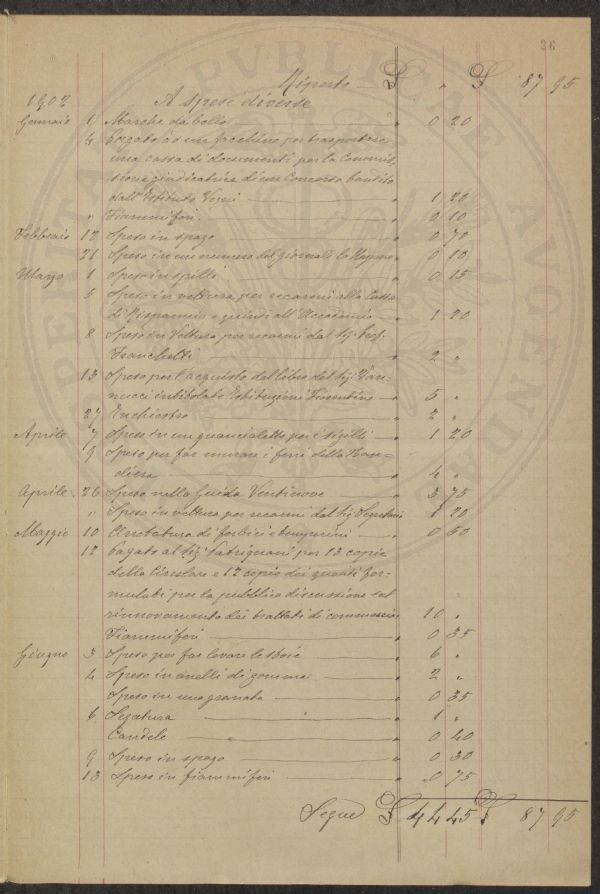 36
Riporto £ " £ 87 95
1902 A spese diverse
Gennaio 1 Marche da bollo " 0 20
4 Pagato ad un facchino per trasportare
una cassa di documenti per la Commis-
sione giudicatrice di un Concorso bandito
dall'Istituto Vegni " 1 20
" Fiammiferi " 0 10
Febbraio 12 Speso in spago " 0 70
21 Speso in un numero del giornale la " 0 10
Marzo 1 Speso in spilli " 0 15
5 Speso in vettura per recarmi alla Cassa
di Risparmio e quindi all'Accademia " 1 20
8 Speso in Vettura per recarmi dal Sig. Prof.
Franchetti " 2 "
13 Speso per l'acquisto del libro del Sig. Van-
nucci intitolato Istituzioni Fiorentine " 5 "
27 Inchiostro " 2 "
Aprile 7 Speso in un guancialetto per i sigilli " 1 20
9 Speso per far murare i ferri della Ban-
diera " 4 "
Aprile 26 Speso nella Guida Ventinove " 3 75
" Speso in vettura per recarmi dal Sig. " 1 20
Maggio 10 Arrotatura di forbici e temperini " 0 60
12 Pagato al Sig. Patrignani per 13 copie
della Circolare e 12 copie dei quesiti for-
mulati per la pubblica discussione sul
rinnovamento dei trattati di commercio " 10 "
Fiammiferi " 0 35
Giugno 3 Speso per far levare le stoie " 6 "
4 Speso in anelli di gomma " 2 "
Speso in una granata " 0 35
6 Segatura " 1 "
Candele " 0 40
9 Speso in spago " 0 30
13 Speso in fiammiferi " 0 75
Segue £ 44 45 £ 87 95